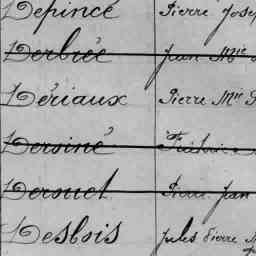 Depincé Pierre Josep
Derbrée Jean Mie
Dériaux Pierre Mie
Dersiné
Derouet Pierre Jean
Desbois Jules Pierre